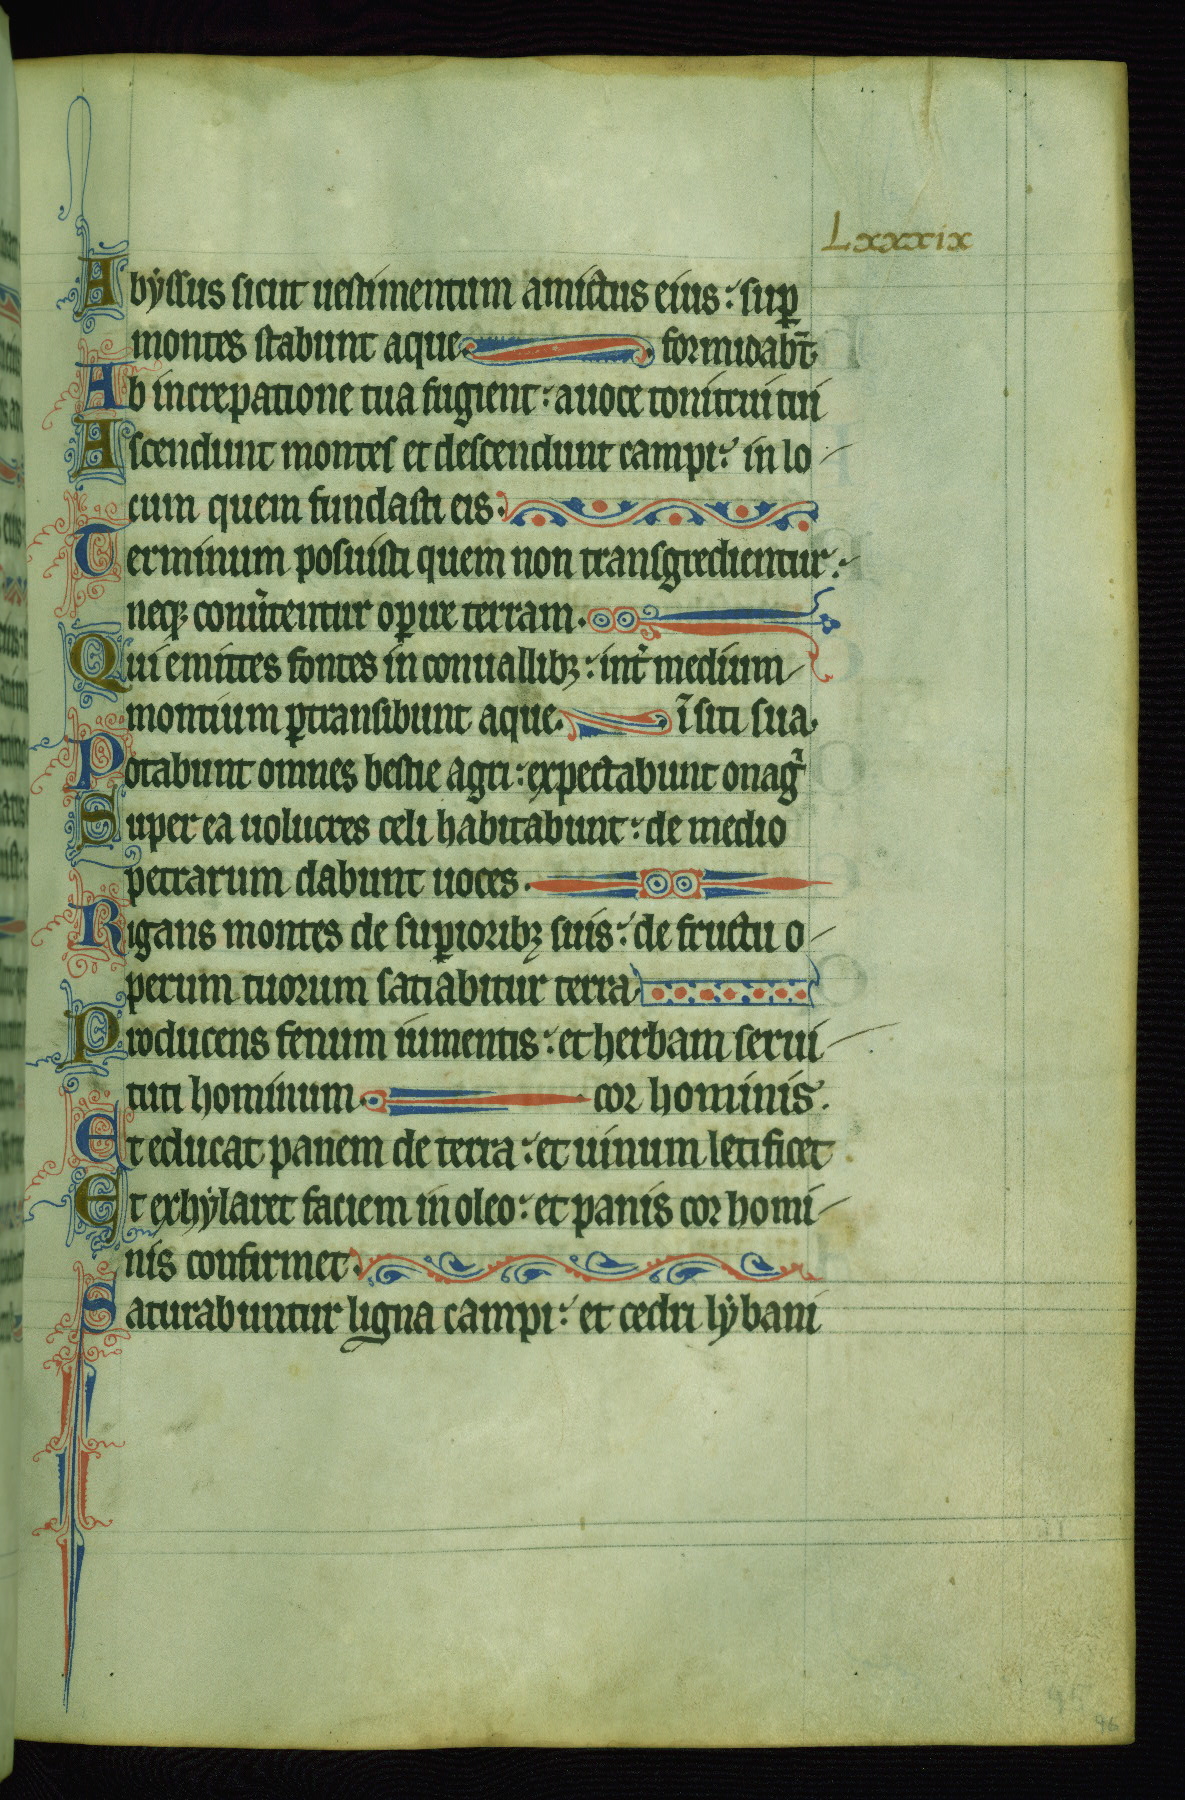 Lxxxix
Abyssus sicut uestimentum amictus eius : sup̲
montes stabunt aque. formidabt̄.
Ab increpatione tua fugient : a uoce tonitrui tui
Ascendunt montes et descendunt campi : in lo
cum quem fundasti eis.
Terminum posuisti quem non transgredientur :
neq; conu̾tentur op̲ire terram.
Qui emittes fontes in conuallibꝫ : int̾ medium
montium ꝑtransibunt aque. ī siti sua.
Potabunt omnes bestie agri : expectabunt onag̾
Super ea uolucres celi habitabunt : de medio
petrarum dabunt uoces.
Rigans montes de suꝑioribꝫ suis : de fructu o
perum tuorum satiabitur terra.
Producens fenum iumentis : et herbam serui
tuti hominum. cor hominis.
Et educat panem de terra : et uinum letificet
Et exhylaret faciem in oleo : et panis cor homi
nis confirmet.
Saturabuntur ligna campi : et cedri lybani
46